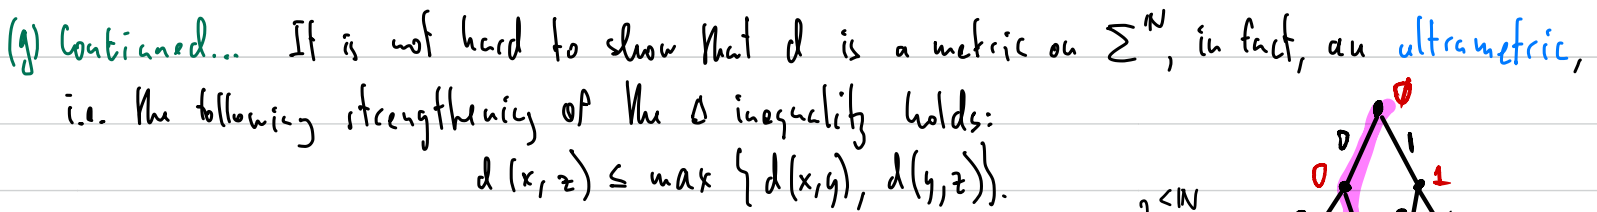 (g) Continued... It is not hard to show that d is a metric on Σ^ℕ, in fact, an ultrametric,
i.e. the following strengthening of the Δ inequality holds:
d(x,z) ≤ max {d(x,y), d(y,z)}.
∅
0 1
0 1
2^<ℕ